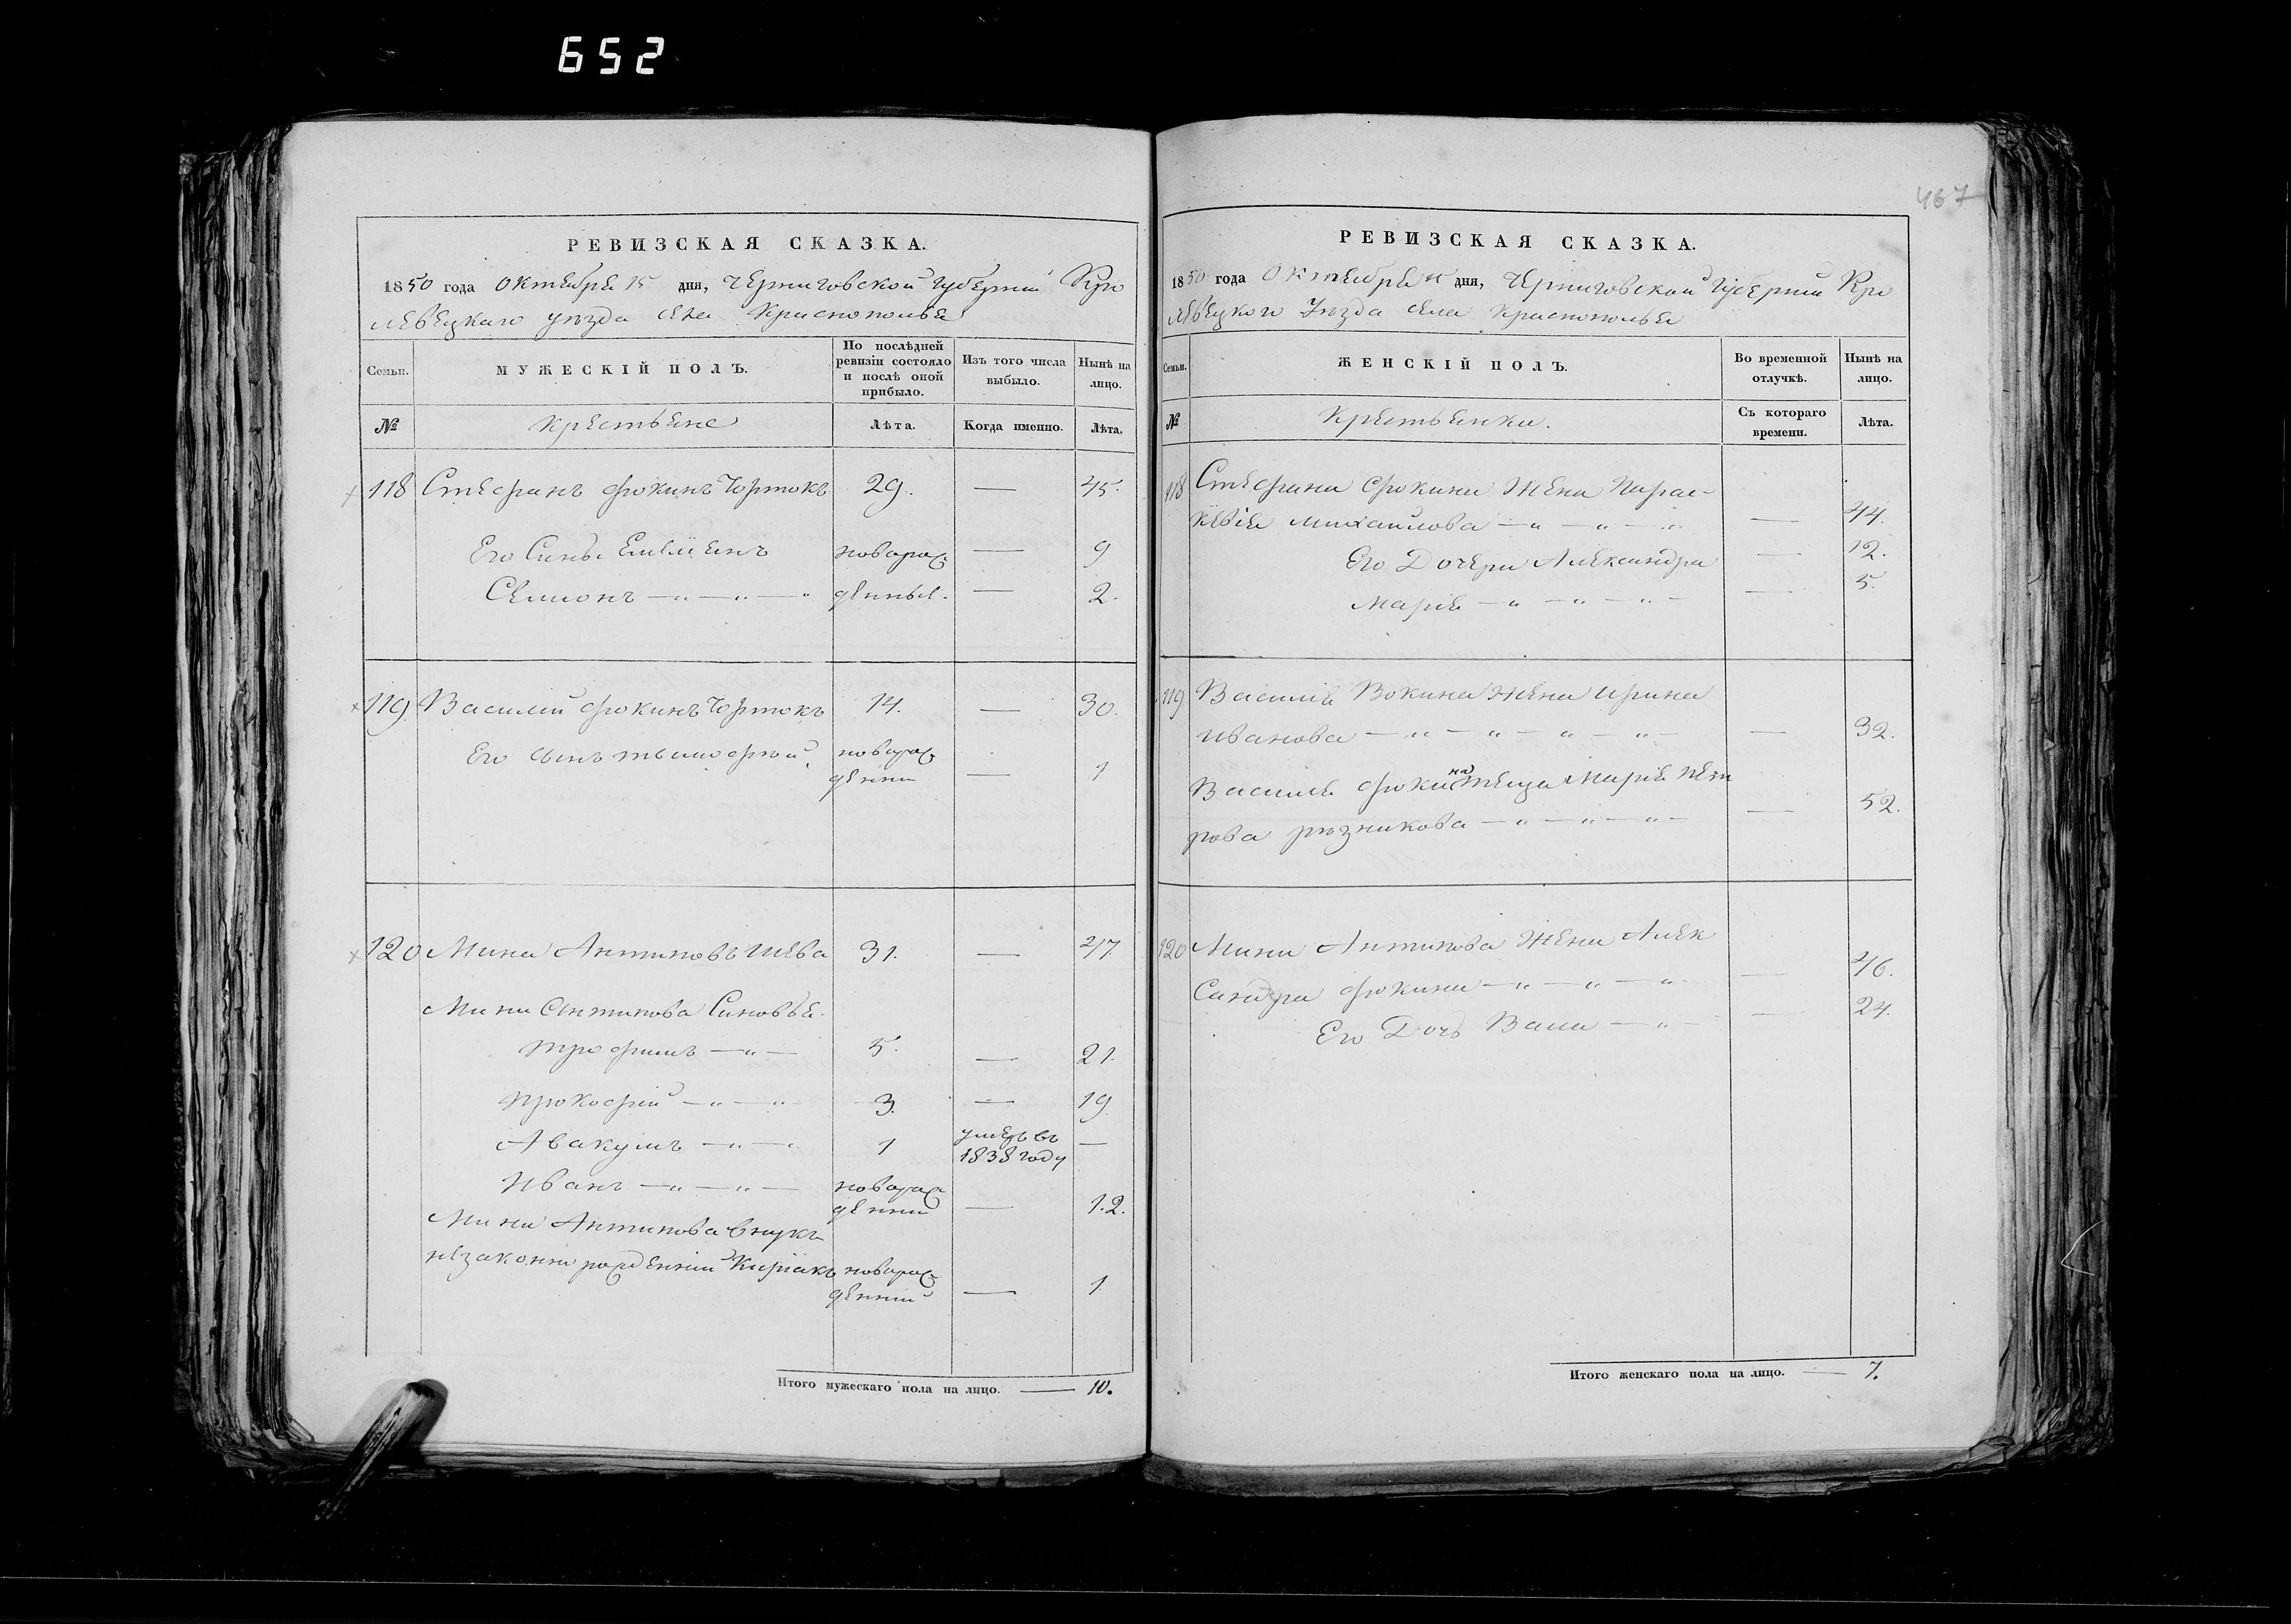 652
467
РЕВИЗСКАЯ СКАЗКА.
1850 года Октября 15 дня, Черниговской Губерніи Кро
левецкаго уѣзда села Краснополья
Семьи.
МУЖЕСКІЙ ПОЛЪ.
По послѣдней ревизіи состояло и послѣ оной прибыло.
Изъ того числа выбыло.
Нынѣ на лицо.
№
Крестьяне
Лѣта.
Когда именно.
Лѣта.
118 Стефанъ Фокинъ Чортокъ 29. — 45.
Его Сынъ Емиліянъ новорож — 9
Семионъ — „ — „ — „ денные. — 2.
119 Василій Фокинъ Чортокъ 14. — 30.
Его сынъ тымофѣй новорож
денни — 1
120 Мина Антиповъ Шева 31. — 47
Мини Антипова Синовья
трофимъ — „ — 5. — 21.
прокофій — „ — „ 3. — 19
Авакумъ — „ — „ 1 умеръ въ —
1838 году
Иванъ — „ — „ — новорож
денни — 12.
Мини Антипова внукъ
незаконно рожденній Киріакъ новорож
денній — 1
Итого мужескаго пола на лицо. — 10.
РЕВИЗСКАЯ СКАЗКА.
1850 года Октября 15 дня, Черниговской Губерніи Кро
левецкого Уѣзда села Краснополья
Семьи.
ЖЕНСКІЙ ПОЛЪ.
Во временной отлучкѣ.
Нынѣ на лицо.
№
Крестьянки.
Съ котораго времени.
Лѣта.
118 Стефана Фокина Жена Парас-
кевія михайлова — „ — „ — „ — 44.
Его Дочери Александра — 12.
Марія — „ — „ — „ — — 5.
119 Василія Вокина Жена ирина
иванова — „ — „ — „ — „ — — 32.
Василя Фокина теща Марія пет
рова рѣзникова — „ — „ — „ — — 52.
120 Мини Антипова Жена Алек
Сандра Фокина — „ — „ — „ — 46.
Его Дочь Васа — „ — — 24.
Итого женскаго пола на лицо. — 7.